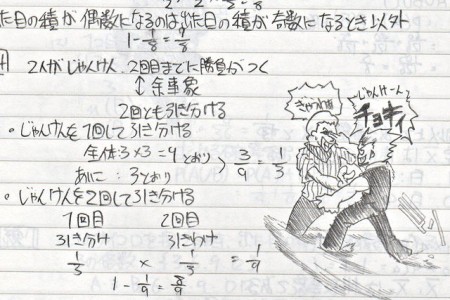 た目の積が偶数になるのは出た目の積が奇数になるとき以外
1 - 1/8 = 9/8
2人がじゃんけん、2回目までに勝負がつく
↕余事象
2回とも引き分ける
・じゃんけんを1回して引き分ける
全体:3×3=9とおり
あいこ:3とおり
3/9 = 1/3
・じゃんけんを2回して引き分ける
1回目 2回目
引き分け 引きわけ
1/3 × 1/3 = 1/9
1 - 1/9 = 8/9
じゃんけーん
チョキィ